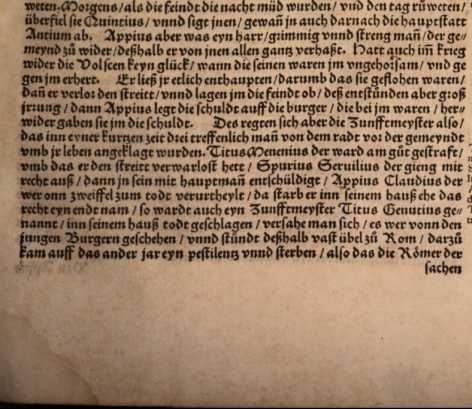 weten. Morgens / als die feindt die nacht müd wurden / vnd den tag růweten /
überfiel sie Quintius / vnnd sigt jnen / gewañ jn auch darnach die hauptstatt
Antium ab. Appius aber was eyn harr / grimmig vnnd streng mañ / der ge-
meynd zů wider / deßhalb er von jnen allen gantz verhaßt. Hatt auch iñ krieg
wider die Volscen keyn glück / wann die seinen waren jm vngehorsam / vnd ge
gen jm erhert. Er ließ jr etlich enthaupten / darumb das sie geflohen waren /
dañ er verlor den streitt / vnnd lagen jm die feindt ob / deß entstůnden aber groß
jrrung / dann Appius legt die schuldt auff die burger / die bei jm waren / her-
widder gaben sie jm die schuldt. Des regten sich aber die Zunfftmeyster also /
das inn eyner kurtzen zeit drei treffenlich mañ von dem radt vor der gemeyndt
vmb jr leben angeklagt wurden. Titus Menenius der ward am gůt gestrafft /
vmb das er den streitt verwarlost hett / Spurius Seruilius der gieng mit
recht auß / dann jn sein mit hauptmañ entschüldigt / Appius Claudius der
wer onn zweiffel zum todt verurtheylt / da starb er inn seinem hauß ehe das
recht eyn endt nam / so wardt auch eyn Zunfftmeyster Titus Genutius ge-
nannt / inn seinem hauß todt geschlagen / versahe man sich / es wer vonn den
jungen Burgern geschehen / vnnd stůndt deßhalb vast übel zů Rom / darzů
kam auff das ander jar eyn pestilentz vnnd sterben / also das die Römer der
sachen